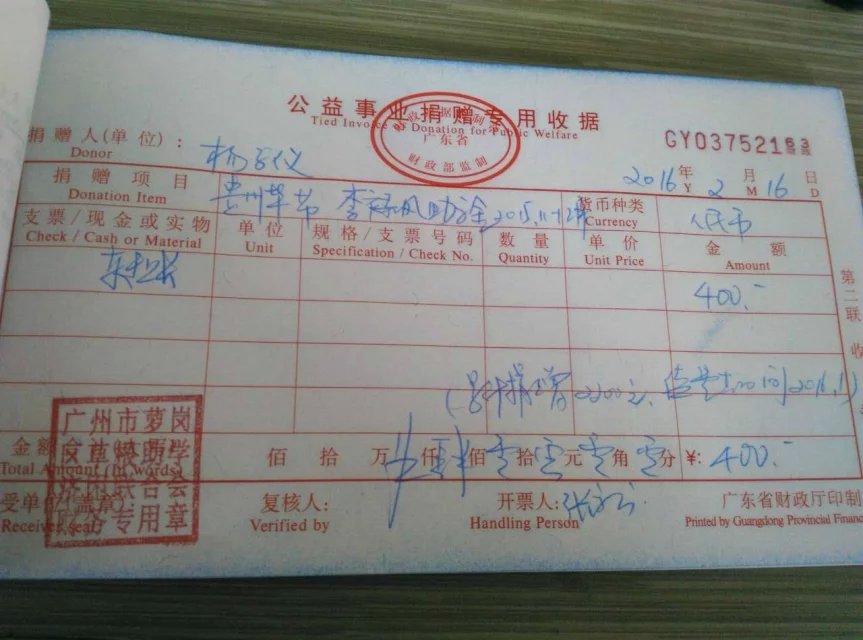 公益事业捐赠专用收据
Tied Invoice to Donation for Public Welfare
广东省
财政部监制
GY03752183
捐赠人(单位):
Donor
2016年 2 月 16 日
Y M D
捐赠项目 贵州毕节 助 2015.11-12 货币种类 人民币
Donation Item Currency
支票/现金或实物 单位 规格/支票号码 数量 单价 金额
Check / Cash or Material Unit Specification / Check No. Quantity Unit Price Amount
400.-
第二联 收
(累计捐赠2200元、 2016.1)
广州市萝岗
助学
联合会
专用章
金额
Total Amount (In Words) 佰 拾 万 仟 肆 佰 零 拾 零 元 零 角 零 分 ¥: 400.-
受单位(盖章) 复核人: 开票人: 广东省财政厅印制
Receiver (seal) Verified by Handling Person Printed by Guangdong Provincial Finance